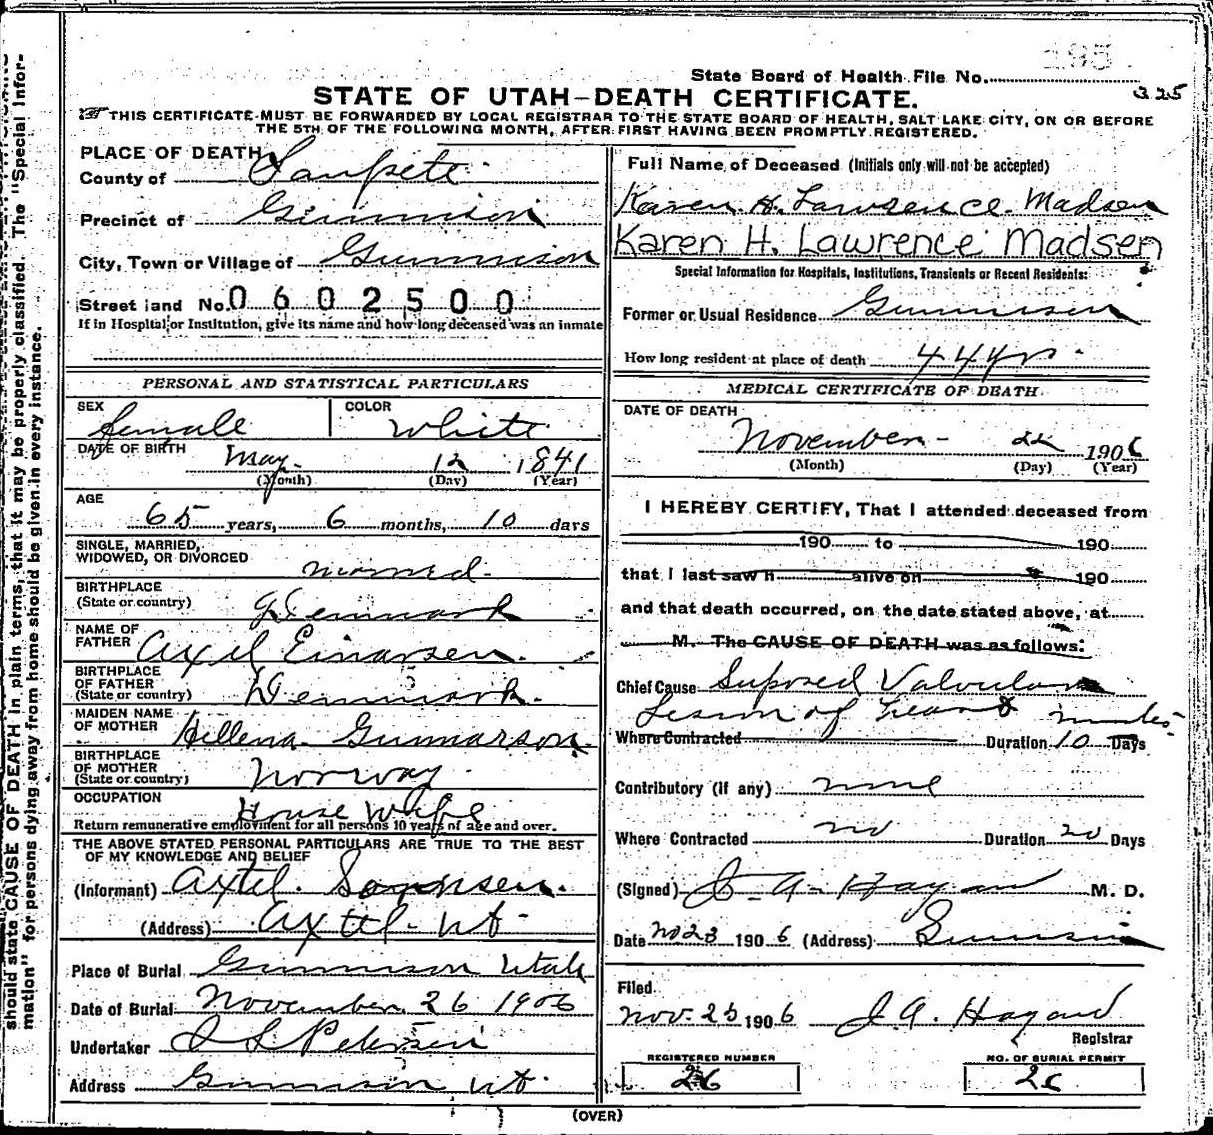 should state CAUSE OF DEATH in plain terms, that it may be properly classified. The "Special Infor-
mation" for persons dying away from home should be given in every instance.
195
State Board of Health File No.
325
STATE OF UTAH—DEATH CERTIFICATE.
THIS CERTIFICATE MUST BE FORWARDED BY LOCAL REGISTRAR TO THE STATE BOARD OF HEALTH, SALT LAKE CITY, ON OR BEFORE
THE 5TH OF THE FOLLOWING MONTH, AFTER FIRST HAVING BEEN PROMPTLY REGISTERED.
PLACE OF DEATH
County of Sanpete
Precinct of Gunnison
City, Town or Village of Gunnison
Street and No. 0602500
If in Hospital or Institution, give its name and how long deceased was an inmate
PERSONAL AND STATISTICAL PARTICULARS
SEX female COLOR White
DATE OF BIRTH May 12 1841
(Month) (Day) (Year)
AGE
65 years, 6 months, 10 days
SINGLE, MARRIED,
WIDOWED, OR DIVORCED married
BIRTHPLACE
(State or country) Denmark
NAME OF
FATHER Axel Einarsen
BIRTHPLACE
OF FATHER
(State or country) Denmark
MAIDEN NAME
OF MOTHER Hellena Gunnarson
BIRTHPLACE
OF MOTHER
(State or country) Norway
OCCUPATION House Wife
Return remunerative employment for all persons 10 years of age and over.
THE ABOVE STATED PERSONAL PARTICULARS ARE TRUE TO THE BEST
OF MY KNOWLEDGE AND BELIEF
(Informant) Axtel Sorensen
(Address) Axtel Ut
Place of Burial Gunnison Utah
Date of Burial November 26 1906
Undertaker Petersen
Address Gunnison Ut
Full Name of Deceased (Initials only will not be accepted)
Karen H. Lawrsence Madsen
Karen H. Lawrence Madsen
Special Information for Hospitals, Institutions, Transients or Recent Residents:
Former or Usual Residence Gunnison
How long resident at place of death 44 yr
MEDICAL CERTIFICATE OF DEATH
DATE OF DEATH
November 22 1906
(Month) (Day) (Year)
I HEREBY CERTIFY, That I attended deceased from
190 to 190
that I last saw h alive on 190
and that death occurred, on the date stated above, at
M. The CAUSE OF DEATH was as follows:
Chief Cause Suposed Valvular
Lesion of heart minutes
Where Contracted Duration 10 Days
Contributory (if any) none
Where Contracted no Duration 20 Days
(Signed) J A Hagan M. D.
Date No 23 1906 (Address) Gunnison
Filed
Nov. 25 1906 J. A. Hagan
Registrar
REGISTERED NUMBER
26
NO. OF BURIAL PERMIT
26
(OVER)